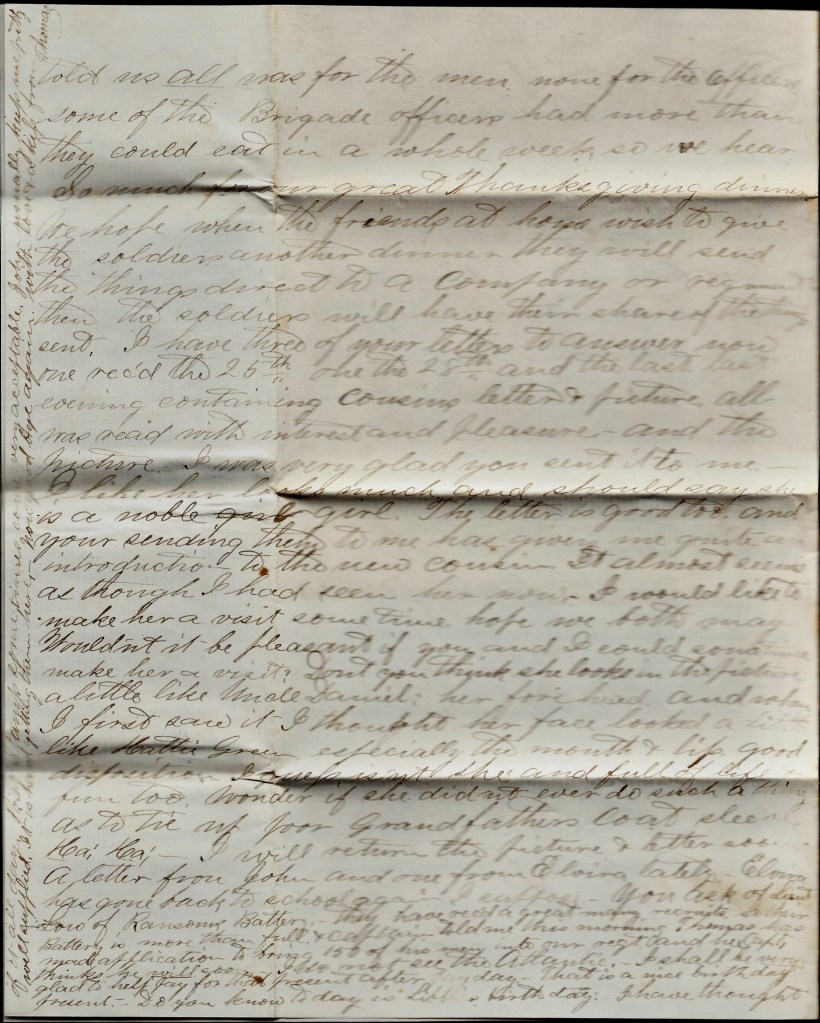 told us all was for the men, none for the officers
some of the Brigade officers had more than
they could eat in a whole week, so we hear
So much for our great Thanksgiving dinner
We hope when the friends at home wish to give
the soldiers another dinner they will send
the things direct to a Company or regiment
then the soldiers will have their share of the things
sent. I have three of your letters to answer now
one recd the 26th one the 28th and the last last
evening containing Cousins letter & picture, all
was read with interest and pleasure - and the
picture. I was very glad you sent it to me. -
I like her looks much and should say she
is a noble girl girl. The letter is good too. and
your sending them to me has given me quite an
introduction to the new cousin It almost seems
as though I had seen her now. - I would like to
make her a visit some time hope we both may
Wouldn't it be pleasant if you and I could sometime
make her a visit? Dont you think she looks in the picture
a little like Uncle Daniel; her forehead, and when
I first saw it I thought her face looked a little
like Hattie Green, especially the mouth & lip, good
disposition I guess isnt she and full of life
fun too, wonder if she didn't ever do such a thing
as to tie up poor Grandfathers coat sleeve
Ha! Ha! - I will return the picture & letter soon -
A letter from John and one from Elvira lately - Elvira
has gone back to school again I suppose - You ask of Lieut
Low of Ransoms Battery - they have recd a great many recruits,
Battery is more than full & captain told me this morning Thomas has
made application to bring 150 of his men into our regt and he
thinks he will go on. I do not see the Atlantic. - I shall be very
glad to help pay for that present after pay day - That is a nice birthday
present. - Do you know to day is birthday - I have thought
of it all day. sometimes come very acceptable. John usually keeps me pretty
well supplied. It is getting them here. now good bye again. with love & a kiss from Thomas